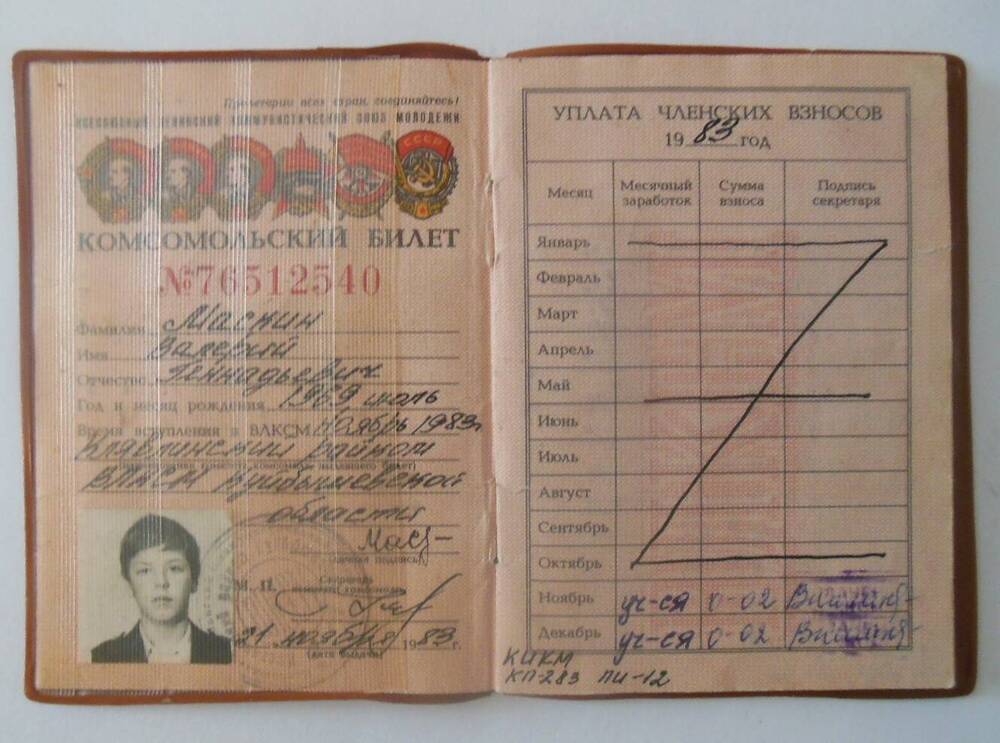 Пролетарии всех стран, соединяйтесь!
ВСЕСОЮЗНЫЙ ЛЕНИНСКИЙ КОММУНИСТИЧЕСКИЙ СОЮЗ МОЛОДЕЖИ
СССР
КОМСОМОЛЬСКИЙ БИЛЕТ
№76512540
Фамилия Маскин
Имя Валерий
Отчество Геннадьевич
Год и месяц рождения 1969 июль
Время вступления в ВЛКСМ ноябрь 1983г
Клявлинский райком
ВЛКСМ Куйбышевской
области
(личная подпись)
М. П. Секретарь
21 ноября 1983 г.
(дата выдачи)
УПЛАТА ЧЛЕНСКИХ ВЗНОСОВ
1983 год
Месяц Месячный заработок Сумма взноса Подпись секретаря
Январь
Февраль
Март
Апрель
Май
Июнь
Июль
Август
Сентябрь
Октябрь
Ноябрь уч-ся 0-02
Декабрь уч-ся 0-02
ККМ
КП-283 ПИ-12